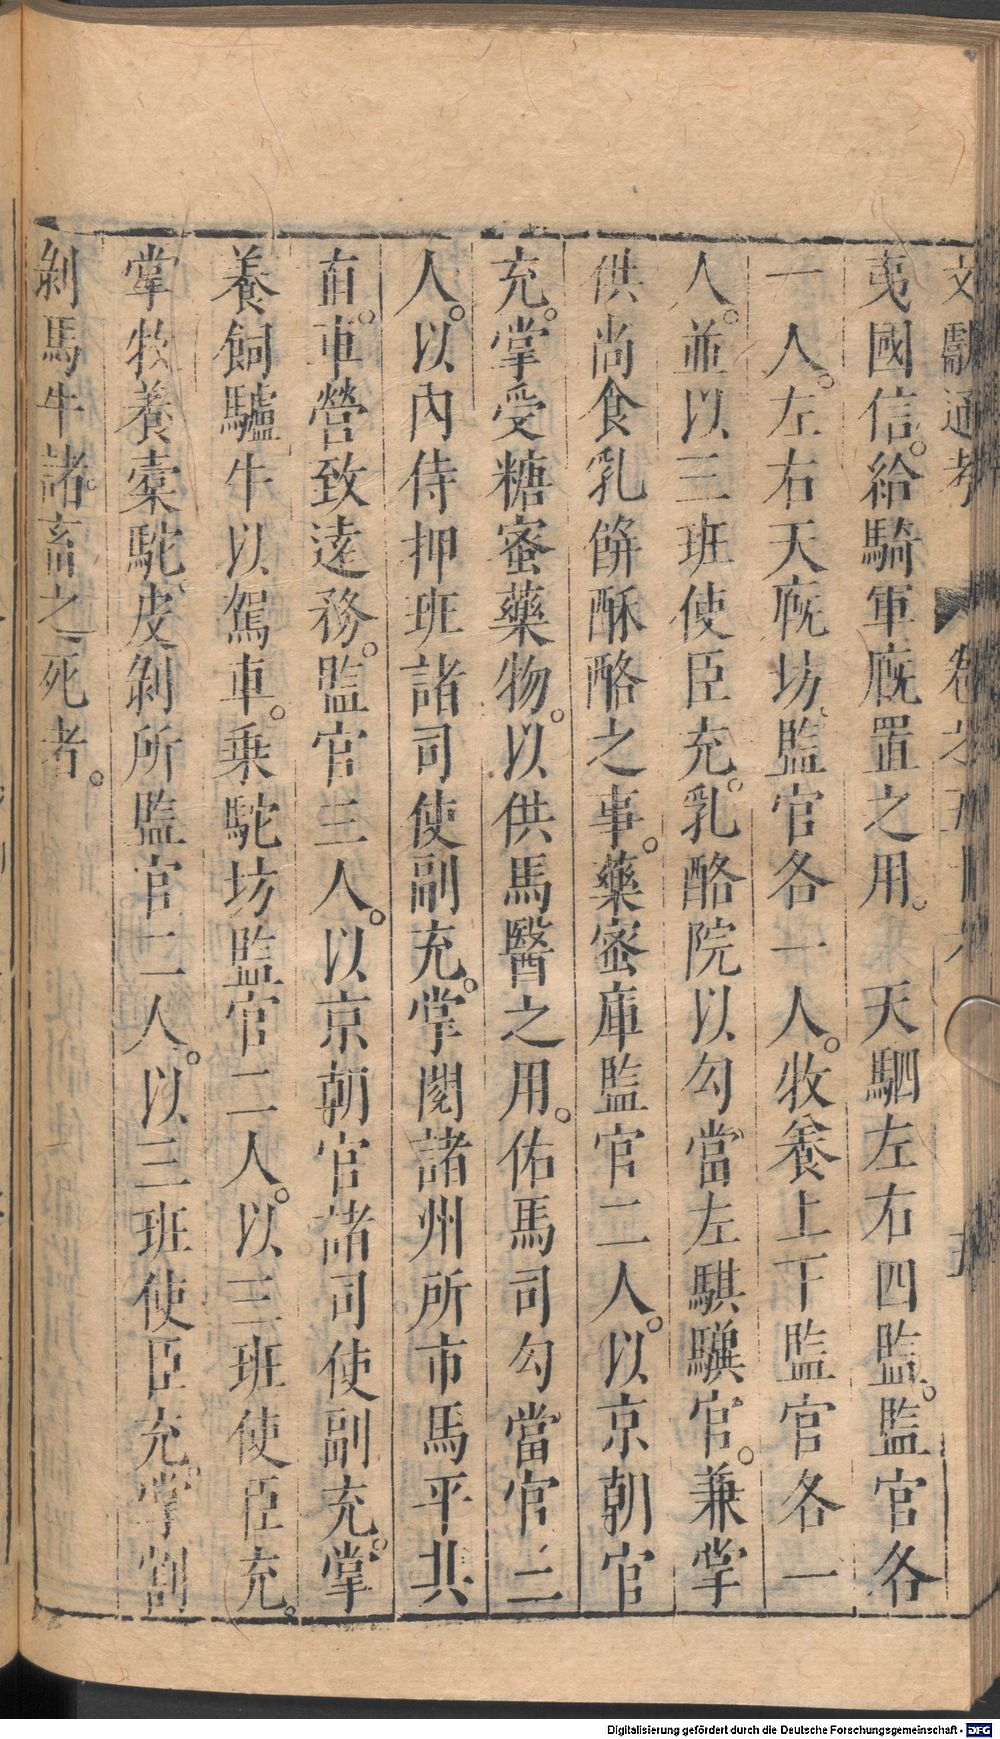 文獻通考 卷之五十六 五
夷國信。給騎軍廐置之用。天駟左右四監。監官各
一人。左右天廐坊、監官各一人。牧養上下監官各一
人。並以三班使臣充。乳酪院以勾當左騏驥官。兼掌
供尚食乳餅酥酪之事。藥蜜庫監官二人。以京朝官
充。掌受糖蜜藥物。以供馬醫之用。佑馬司勾當官三
人。以內侍押班諸司使副充。掌閱諸州所市馬平其
直。車營致遠務。監官三人。以京朝官諸司使副充。掌
養飼驢牛以駕車。乘駝坊監官二人。以三班使臣充。
掌牧養橐駝皮剝所監官二人。以三班使臣充。掌割
剝馬牛諸畜之死者。
Digitalisierung gefördert durch die Deutsche Forschungsgemeinschaft - DFG